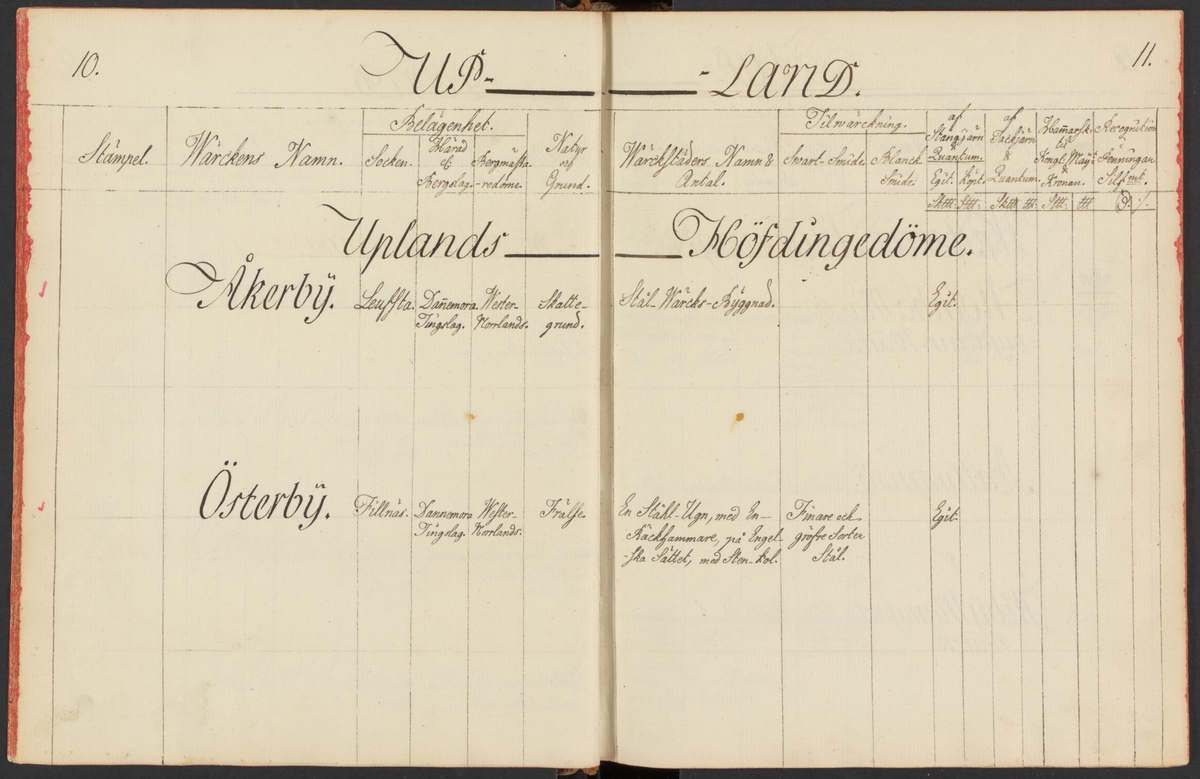 10.
UP- -LAND.
11.
Stämpel.
Wärckens Namn.
Belägenhet.
Socken.
Härad
Bergslag.
Bergmästa-
-redöme.
Natur
och
Grund.
Wärckstäders Namn &
Antal.
Tilwärckning.
Swart-Smide.
Blanck
Smide.
af
Stångjärn
Quantum.
Egit. Köpt.
af
Tackjärn
Quantum.
Hammarsk.
til
Kongl. Maÿt.
Kronan.
Recognition
Penningar
Silfmt.
Uplands Höfdingedöme.
Åkerbÿ.
Leufsta.
Dan̄emora
Tingslag.
Wester-
Norrlands.
Skatte-
grund.
Stål-Wärcks-Byggnad.
Egit.
Österbÿ.
Fillnäs.
Dannemora
Tingslag.
Wester-
Norrlands.
Frälse.
En Ståhl-Ugn, med En-
Räckhammare, på Engel-
-ska Sättet, med Sten-kol.
Finare och
gröfre Sorter
Stål.
Egit.